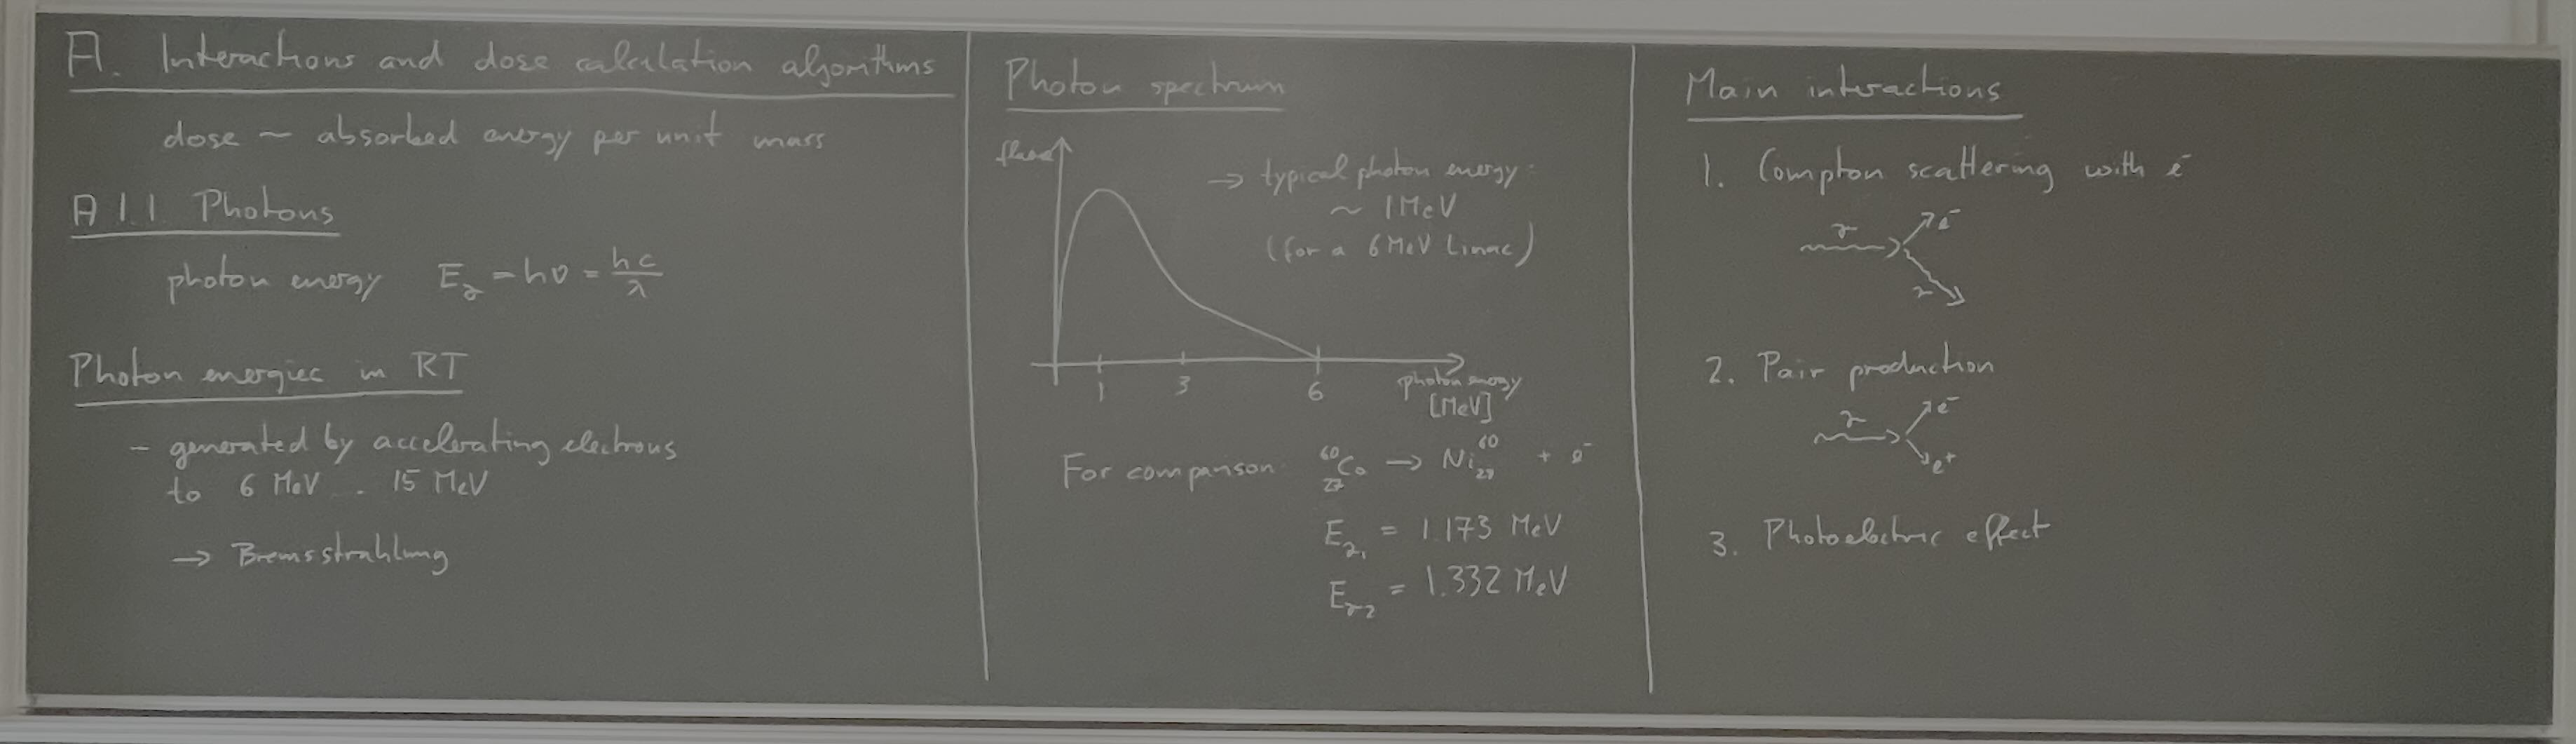 A. Interactions and dose calculation algorithms
dose ~ absorbed energy per unit mass
A 1.1. Photons
photon energy E_γ = hν = hc/λ
Photon energies in RT
- generated by accelerating electrons
to 6 MeV .. 15 MeV
→ Bremsstrahlung
Photon spectrum
→ typical photon energy:
~ 1 MeV
(for a 6 MeV Linac)
1 3 6
photon energy
[MeV]
For comparison: ⁶⁰₂₇Co → Ni⁶⁰ + e⁻
E_γ₁ = 1.173 MeV
E_γ₂ = 1.332 MeV
Main interactions
1. Compton scattering with e⁻
γ e⁻
γ
2. Pair production
γ e⁻
e⁺
3. Photoelectric effect